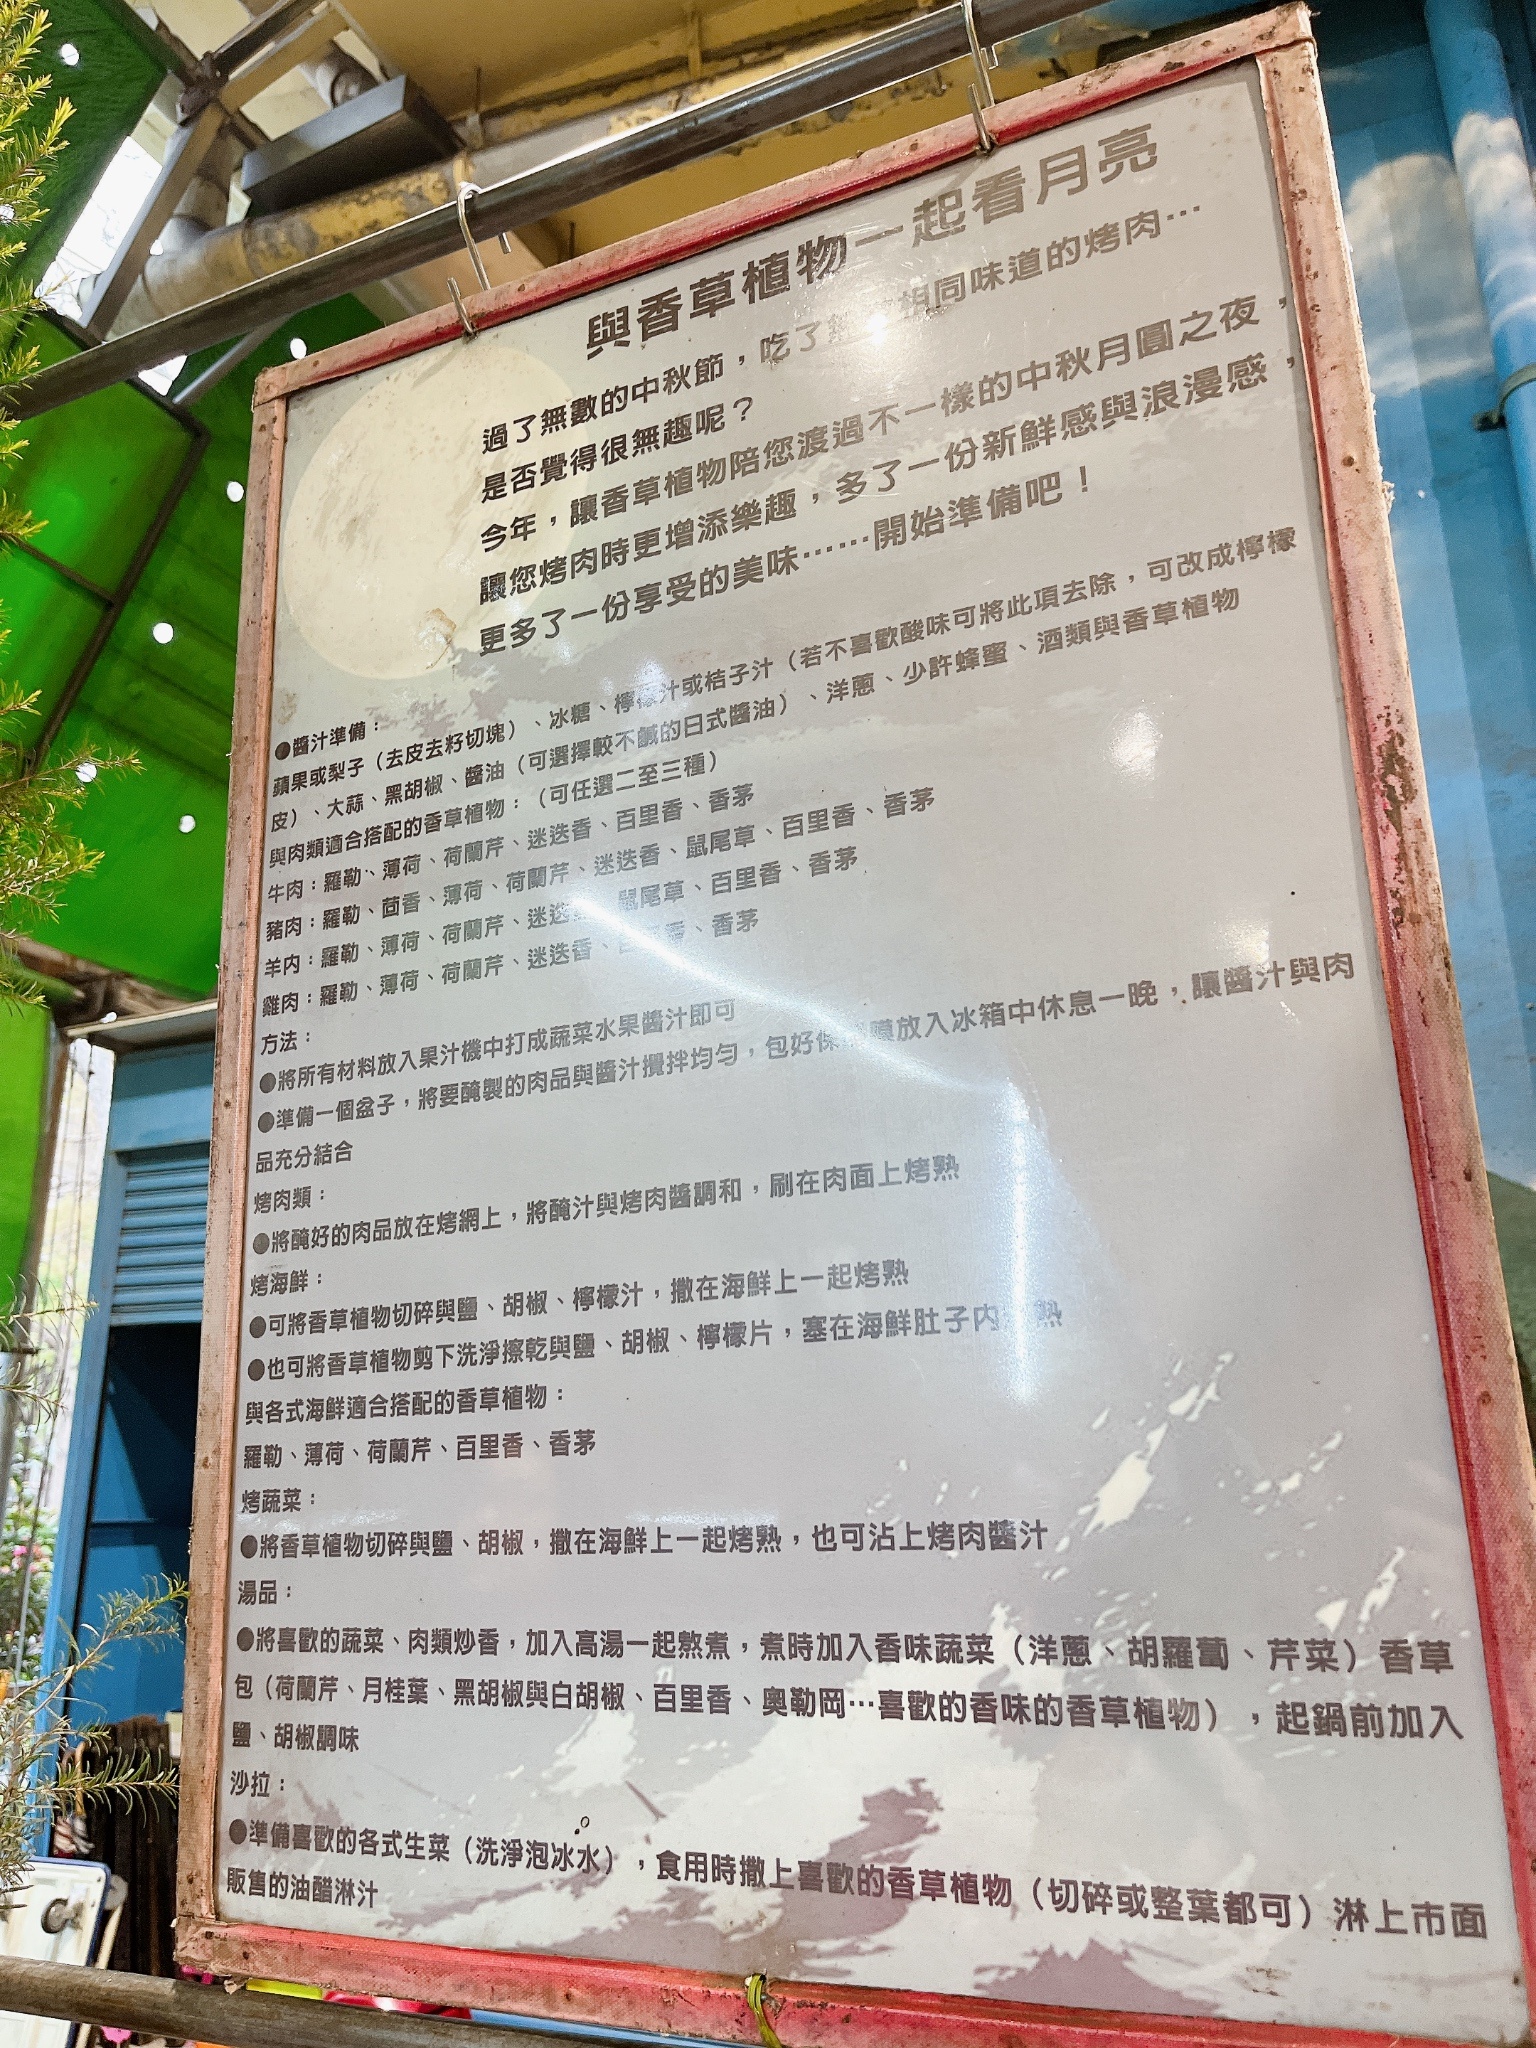 與香草植物一起看月亮
過了無數的中秋節，吃了 相同味道的烤肉…
是否覺得很無趣呢？
今年，讓香草植物陪您渡過不一樣的中秋月圓之夜，
讓您烤肉時更增添樂趣，多了一份新鮮感與浪漫感，
更多了一份享受的美味……開始準備吧！
●醬汁準備：
蘋果或梨子（去皮去籽切塊）、冰糖、檸檬汁或桔子汁（若不喜歡酸味可將此項去除，可改成檸檬
皮）、大蒜、黑胡椒、醬油（可選擇較不鹹的日式醬油）、洋蔥、少許蜂蜜、酒類與香草植物
與肉類適合搭配的香草植物：（可任選二至三種）
牛肉：羅勒、薄荷、荷蘭芹、迷迭香、百里香、香茅
豬肉：羅勒、茴香、薄荷、荷蘭芹、迷迭香、鼠尾草、百里香、香茅
羊肉：羅勒、薄荷、荷蘭芹、迷迭 鼠尾草、百里香、香茅
雞肉：羅勒、薄荷、荷蘭芹、迷迭香、百里香、香茅
方法：
●將所有材料放入果汁機中打成蔬菜水果醬汁即可
●準備一個盆子，將要醃製的肉品與醬汁攪拌均勻，包好保 膜放入冰箱中休息一晚，讓醬汁與肉
品充分結合
烤肉類：
●將醃好的肉品放在烤網上，將醃汁與烤肉醬調和，刷在肉面上烤熟
烤海鮮：
●可將香草植物切碎與鹽、胡椒、檸檬汁，撒在海鮮上一起烤熟
●也可將香草植物剪下洗淨擦乾與鹽、胡椒、檸檬片，塞在海鮮肚子內 熟
與各式海鮮適合搭配的香草植物：
羅勒、薄荷、荷蘭芹、百里香、香茅
烤蔬菜：
●將香草植物切碎與鹽、胡椒，撒在海鮮上一起烤熟，也可沾上烤肉醬汁
湯品：
●將喜歡的蔬菜、肉類炒香，加入高湯一起熬煮，煮時加入香味蔬菜（洋蔥、胡羅蔔、芹菜）香草
包（荷蘭芹、月桂葉、黑胡椒與白胡椒、百里香、奧勒岡…喜歡的香味的香草植物），起鍋前加入
鹽、胡椒調味
沙拉：
●準備喜歡的各式生菜（洗淨泡冰水），食用時撒上喜歡的香草植物（切碎或整葉都可）淋上市面
販售的油醋淋汁